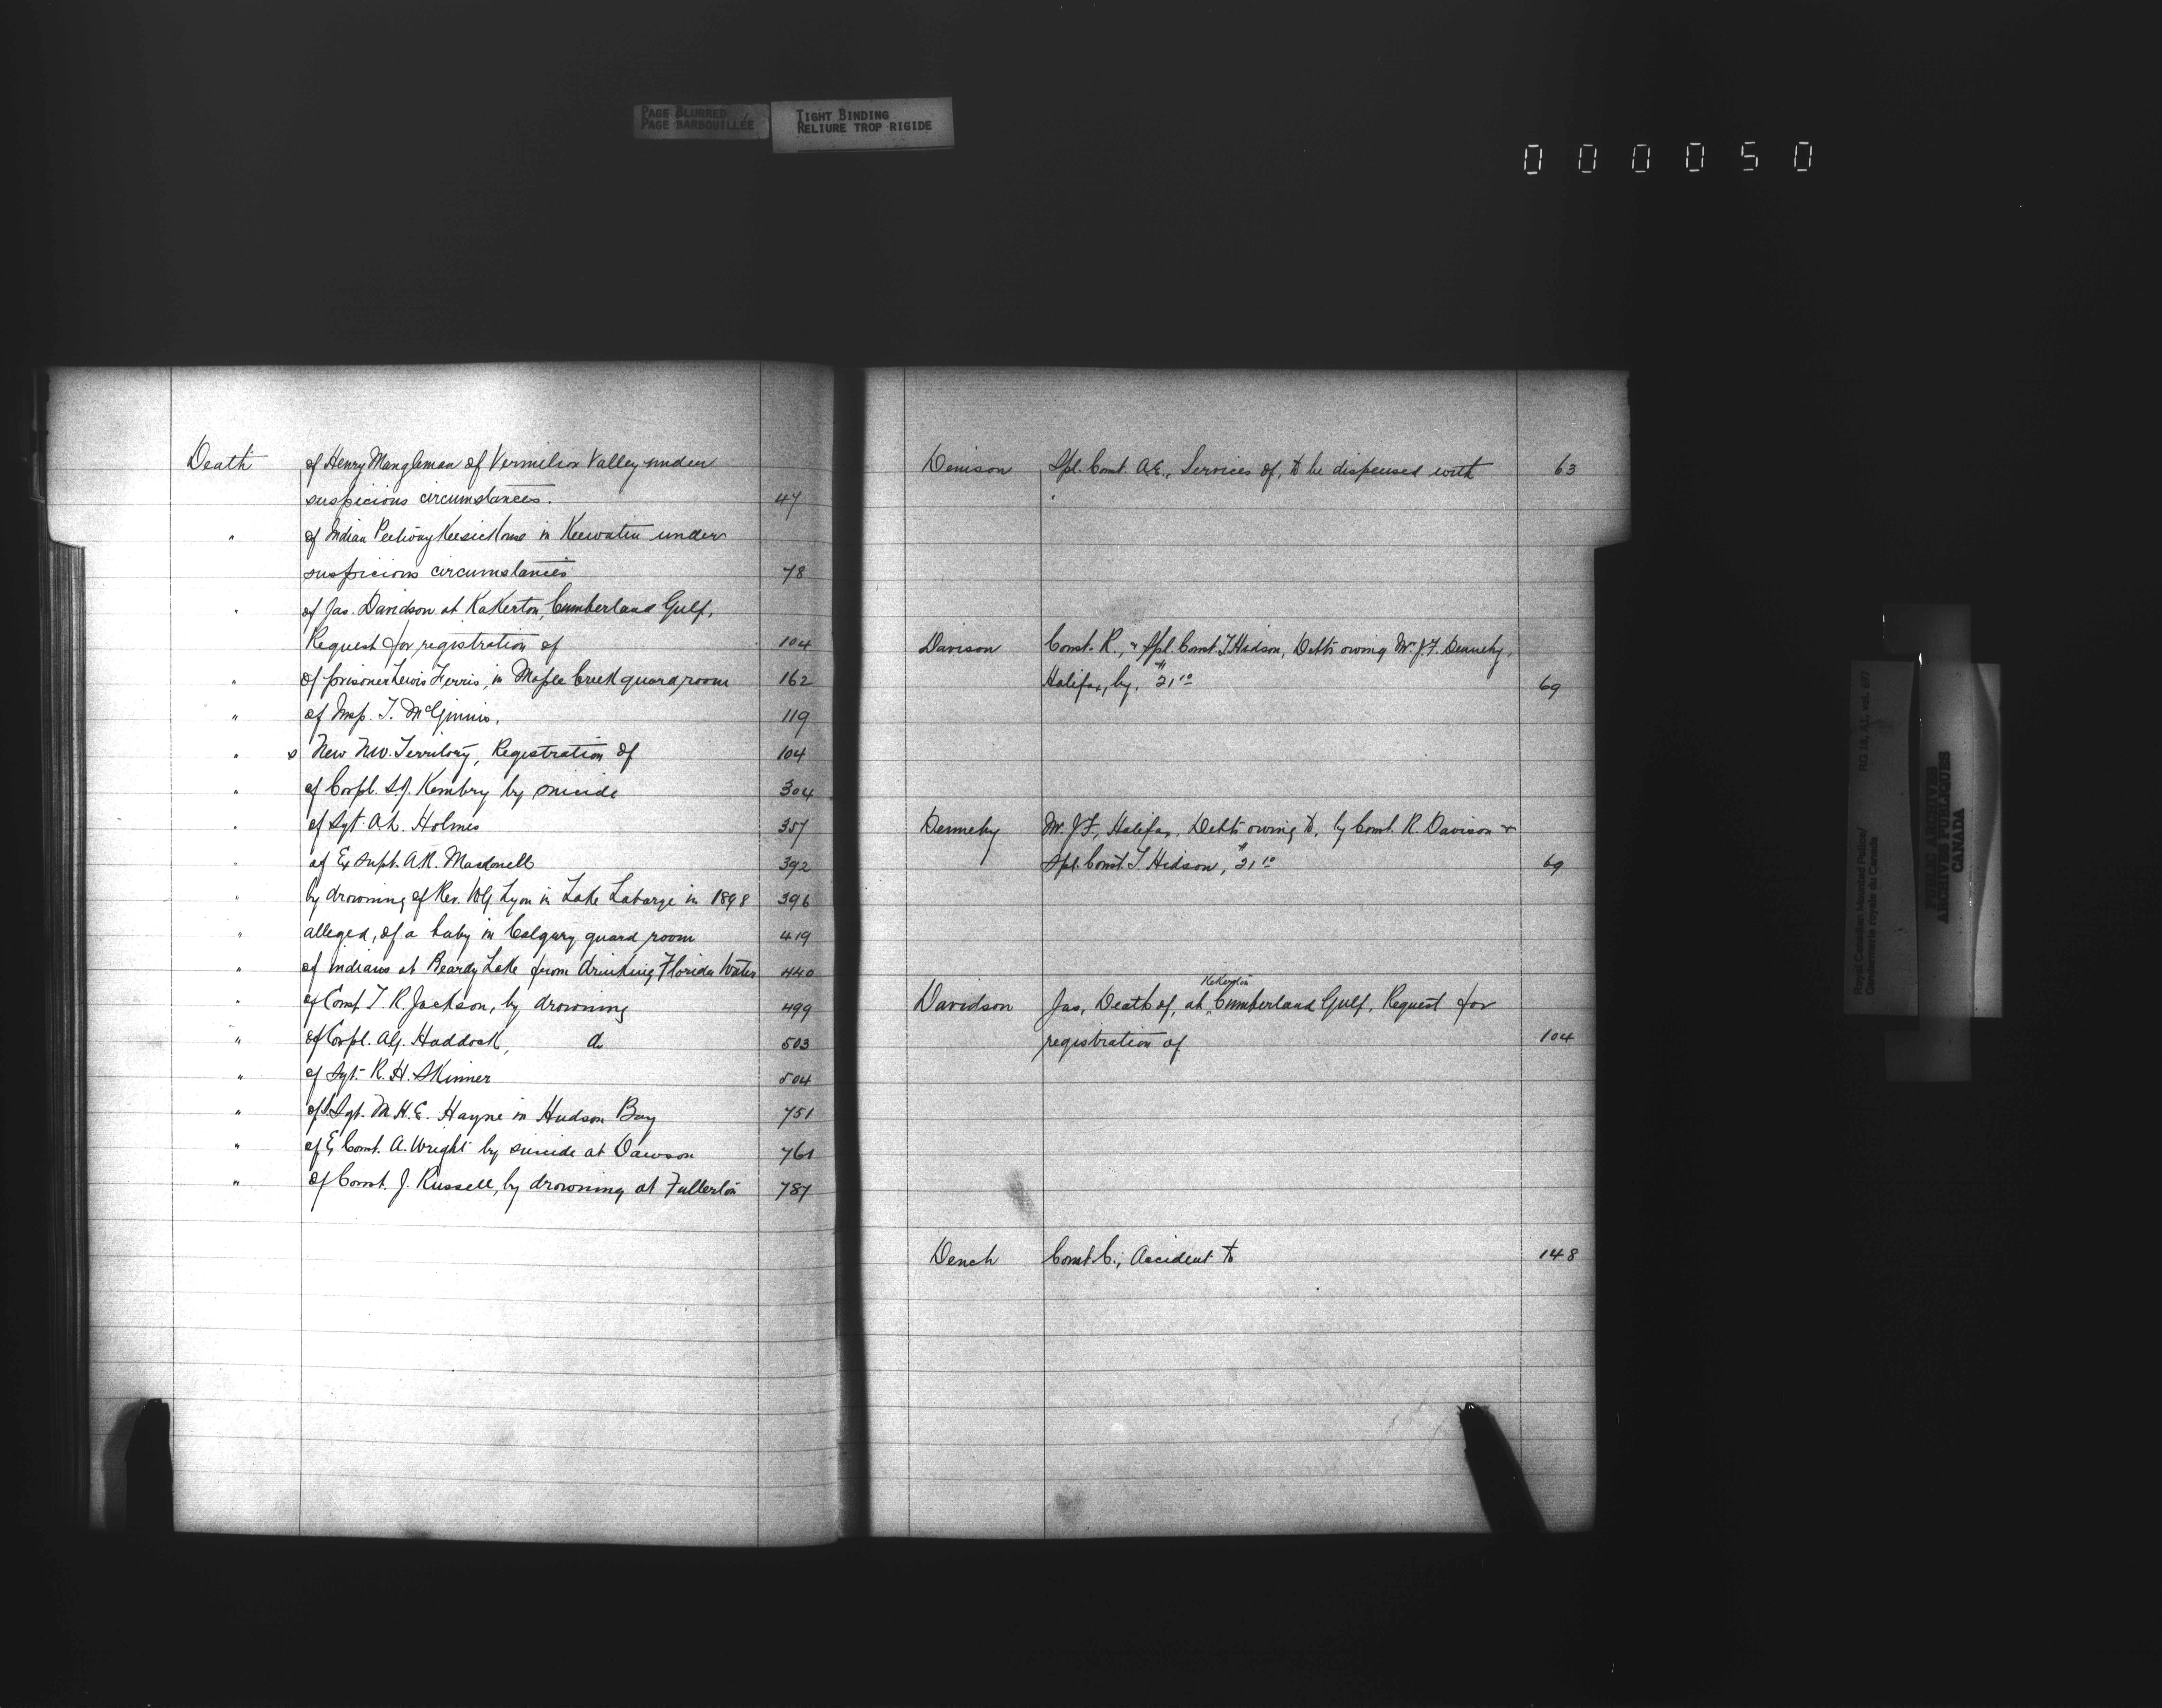 PAGE BLURRED
PAGE BARBOUILLÉE
TIGHT BINDING
RELIURE TROP RIGIDE
000050
Death of Henry Mangleman of Vermilion Valley under
suspicious circumstances. 47
" of Indian in Keewatin under
suspicious circumstances 78
" of Jas. Davidson at Kekerton, Cumberland Gulf,
Request for registration of 104
" of prisoner Lewis Ferris, in Maple Creek guard room 162
" of Insp. T. McGinnis. 119
" s New N.W. Territory, Registration of 104
" of Corpl. S.J. Kembry by suicide 304
" of Sgt. A.L. Holmes 357
" of Ex Supt. A.R. Macdonell 392
" by drowning of Rev. Lyon in Lake Labarge in 1898 396
" alleged, of a baby in Calgary guard room 419
" of Indians at Beardy Lake from drinking Florida Water 440
" of Const. T. R. Jackson, by drowning 499
" of Corpl. A.G. Haddock, do 503
" of Sgt. R. H. Skinner 504
" of S.Sgt. M.H.E. Hayne in Hudson Bay 751
" of Ex Const. A. Wright by suicide at Dawson 761
" of Const. J. Russell, by drowning at Fullerton 787
Denison Spl. Const. A.E., Services of, to be dispensed with 63
Davison Const. R., " Spl. Const. T. Hidson, Debts owing Mr. J.F. Dennehy,
Halifax, by. $21 10 69
Dennehy Mr. J.F., Halifax, Debts owing to, by Const. R. Davison &
Spl. Const. T. Hidson, $21 10 69
Kekerton
Davidson Jas, Death of, at Cumberland Gulf, Request for
registration of 104
Dench Const. C., Accident to 148
Royal Canadian Mounted Police/
Gendarmerie royale du Canada
RG 18, A1, vol. 697
PUBLIC ARCHIVES
ARCHIVES PUBLIQUES
CANADA